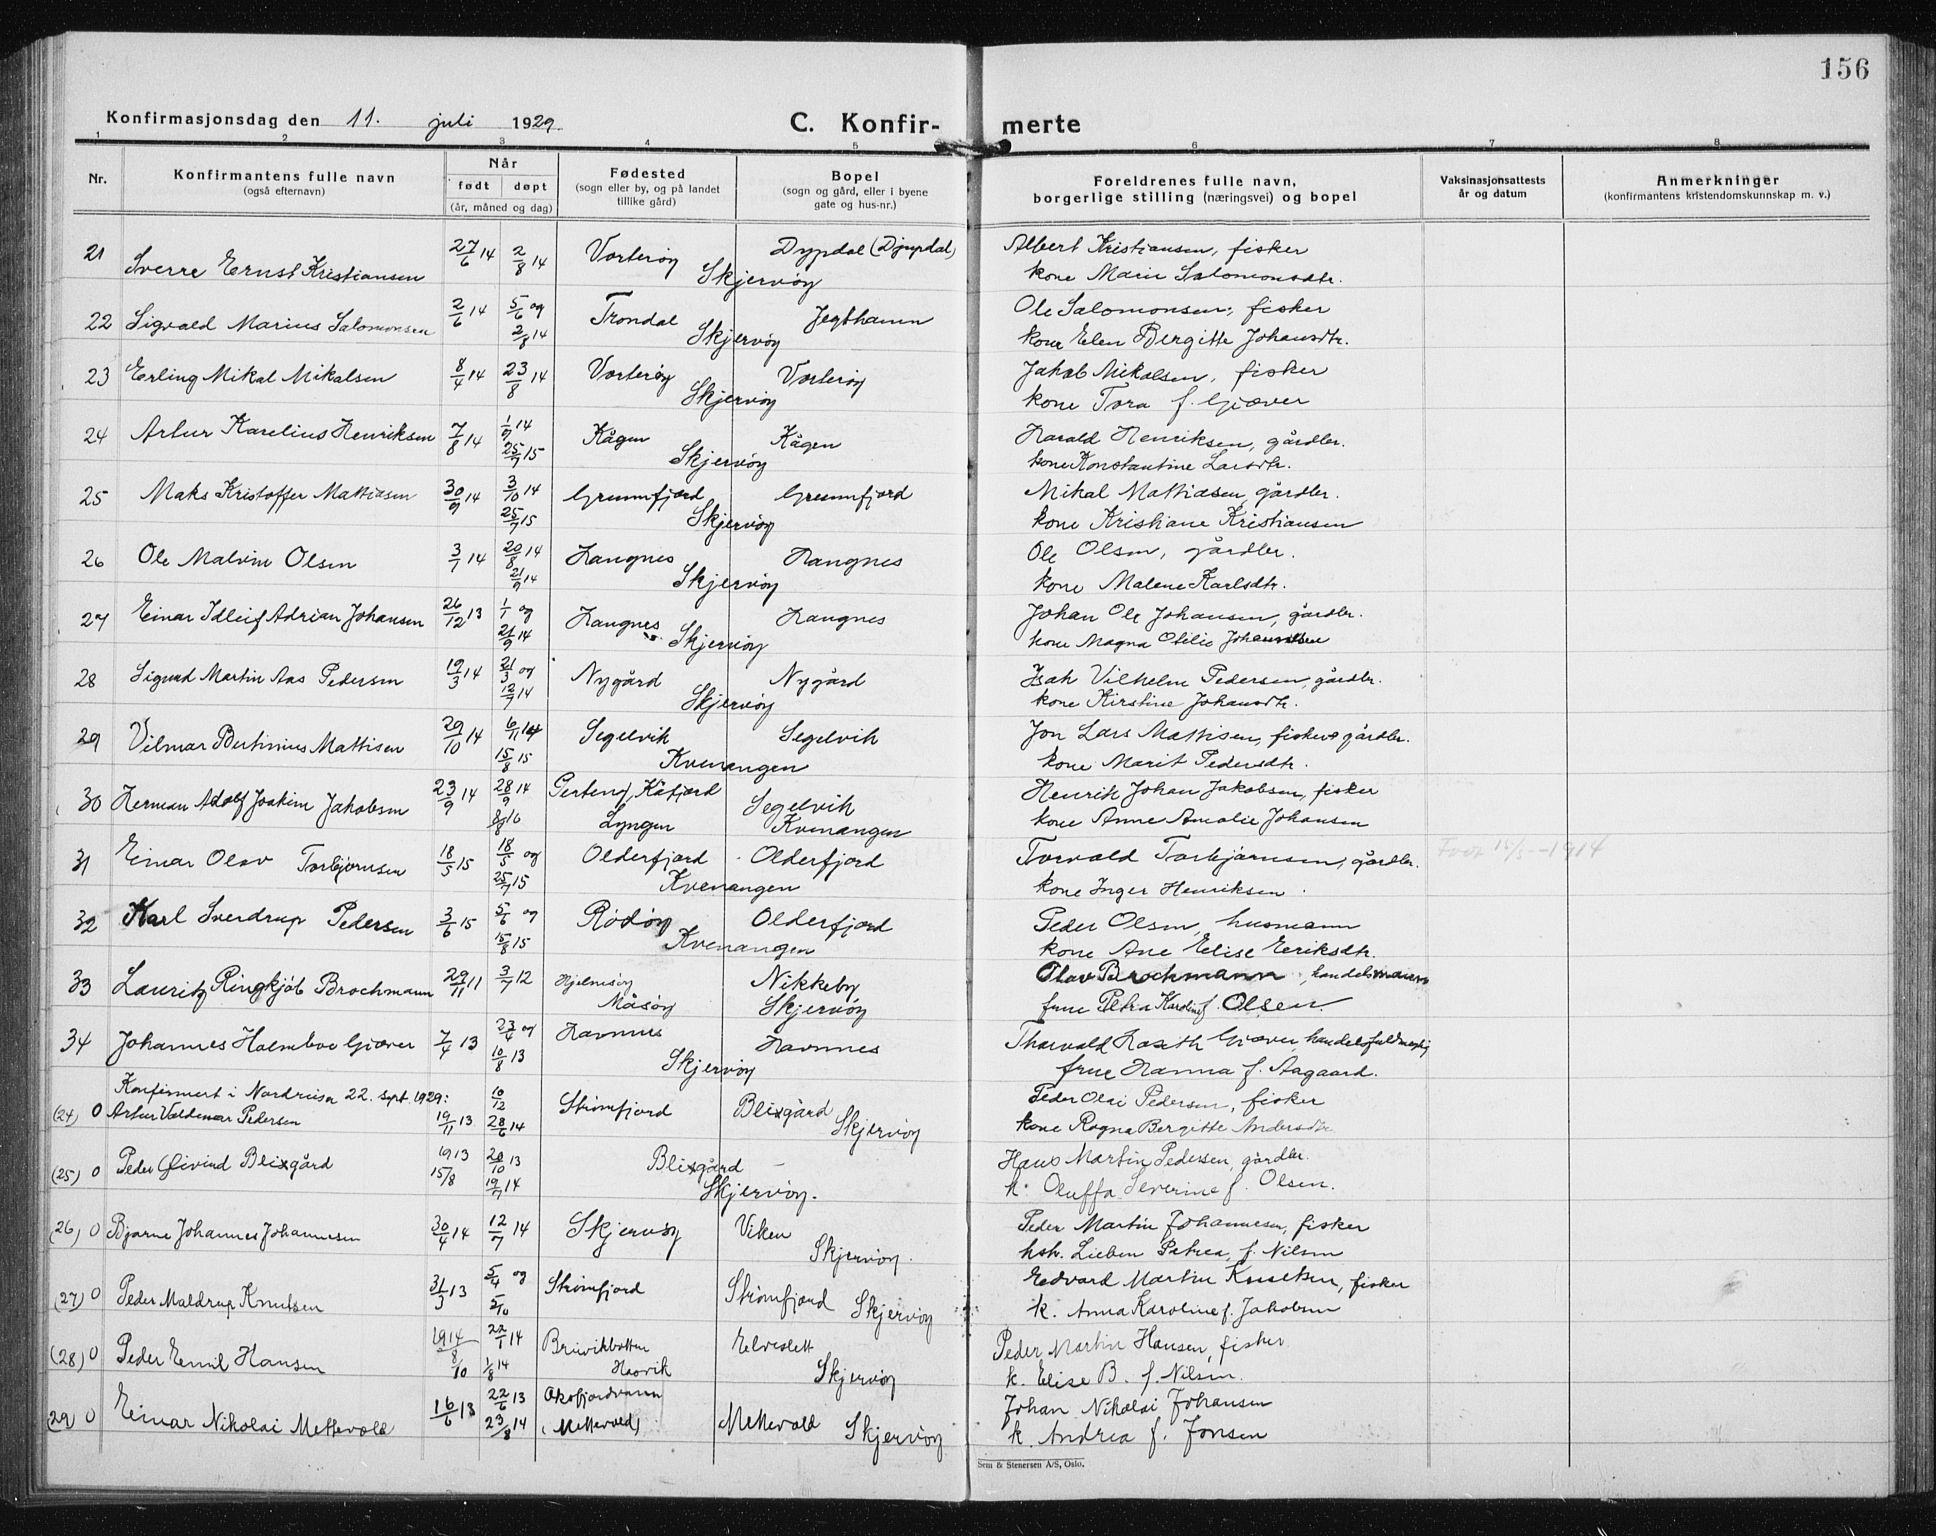 156
Konfirmasjonsdag den 11. juli 1929
C. Konfir- merte
1 2 3 4 5 6 7 8
Nr.
Konfirmantens fulle navn
(også efternavn)
Når
født døpt
(år, måned og dag)
Fødested
(sogn eller by, og på landet
tillike gård)
Bopel
(sogn og gård, eller i byene
gate og hus-nr.)
Foreldrenes fulle navn,
borgerlige stilling (næringsvei) og bopel
Vaksinasjonsattests
år og datum
Anmerkninger
(konfirmantens kristendomskunnskap m. v.)
21 Sverre Ernst Kristiansen 27/6 14 2/8 14 Vorterøy Dypdal (Djupdal) Skjervøy
Albert Kristiansen, fisker
kone Marie Salomonsdtr.
22 Sigvald Marius Salomonsen 2/6 14 5/6 og 2/8 14 Trondal Jegthamn Skjervøy
Ole Salomonsen, fisker
kone Elen Bergitte Johansdtr.
23 Erling Mikal Mikalsen 8/4 14 23/8 14 Vorterøy Vorterøy Skjervøy
Jakob Mikalsen, fisker
kone Tora f. Giæver
24 Artur Karelius Henriksen 7/8 14 1/9 14 25/7 15 Kågen Kågen Skjervøy
Harald Henriksen, gårdbr.
kone Konstantine Larsdtr.
25 Maks Kristoffer Mattiasen 30/9 14 3/10 14 25/7 15 Grunnfjord Grunnfjord Skjervøy
Mikal Mattiasen, gårdbr.
kone Kristiane Kristiansen
26 Ole Malvin Olsen 3/7 14 20/8 14 21/9 14 Hangnes Hangnes Skjervøy
Ole Olsen, gårdbr.
kone Malene Karlsdtr.
27 Einar Idleif Adrian Johansen 26/12 13 1/1 og 21/9 14 Hangnes Hangnes Skjervøy
Johan Ole Johansen, gårdbr.
kone Magna Otilie Johannessen
28 Sigurd Martin Aas Pedersen 19/3 14 21/3 og 12/7 14 Nygård Nygård Skjervøy
Isak Vilhelm Pedersen, gårdbr.
kone Kirstine Johansdtr.
29 Vilmar Bertinius Mattisen 29/10 14 6/11 14 15/8 15 Segelvik Segelvik Kvenangen
Jon Lars Mattisen, fisker & gårdbr.
kone Marit Pedersdtr.
30 Herman Adolf Joakim Jakobsen 23/9 14 28/9 14 8/8 16 Kåfjord Lyngen Segelvik Kvenangen
Henrik Johan Jakobsen, fisker
kone Anne Amalie Johansen
31 Einar Olav Torbjørnsen 18/5 15 18/5 og 25/7 15 Olderfjord Olderfjord Kvenangen
Torvald Torbjørnsen, gårdbr.
kone Inger Henriksen
32 Karl Sverdrup Pedersen 3/6 15 5/6 og 15/8 15 Rødøy Olderfjord Kvenangen
Peder Olsen, husmann
kone Ane Elise Eeriksdtr.
33 Lauritz Ringkjøb Brochmann 29/11 11 3/7 12 Hjelmsøy Måsøy Nikkeby Skjervøy
Olav Brochmann, handelsmann
frue Petra Karoline f. Olsen.
34 Johannes Holmboe Giæver 7/4 13 23/4 og 10/8 13 Havnnes Havnnes Skjervøy
Thorvald Giæver, handelsfullmektig
frue Hanna f. Aagaard.
Konfirmert i Nordreisa 22. sept. 1929:
(24) 0 Artur Valdemar Pedersen 19/11 13 10/12 28/6 14 Strømfjord Blixgård Skjervøy
Peder Olai Pedersen, fisker
kone Ragna Bergitte Andersdtr.
(25) 0 Peder Øivind Blixgård 1913 15/8 20/10 13 19/7 14 Blixgård Skjervøy.
Hans Martin Pedersen, gårdbr.
k. Oluffa Severine f. Olsen.
(26) 0 Bjarne Johannes Johannesen 30/4 14 12/7 14 Skjervøy Viken Skjervøy.
Peder Martin Johannesen, fisker
hstr. Lieben Petrea, f. Nilsen
(27) 0 Peder Maldrup Knutsen 31/3 13 5/4 og 5/10 Strømfjord Strømfjord Skjervøy
Eedvard Martin Knutsen, fisker
k. Anna Karoline f. Jakobsen
(28) 0 Peder Emil Hansen 1914 8/10 22/1 14 1/8 14 Elveslett Skjervøy
Peder Martin Hansen, fisker
k. Elise B. f. Nilsen.
(29) 0 Einar Nikolai Mettevold 16/6 13 22/6 13 23/8 14 Oksfjordvann (Mettevold) Mettevold Skjervøy
Johan Nikolai Johansen
k. Andrea f. Jonsen
Sem & Stenersen A/S, Oslo.